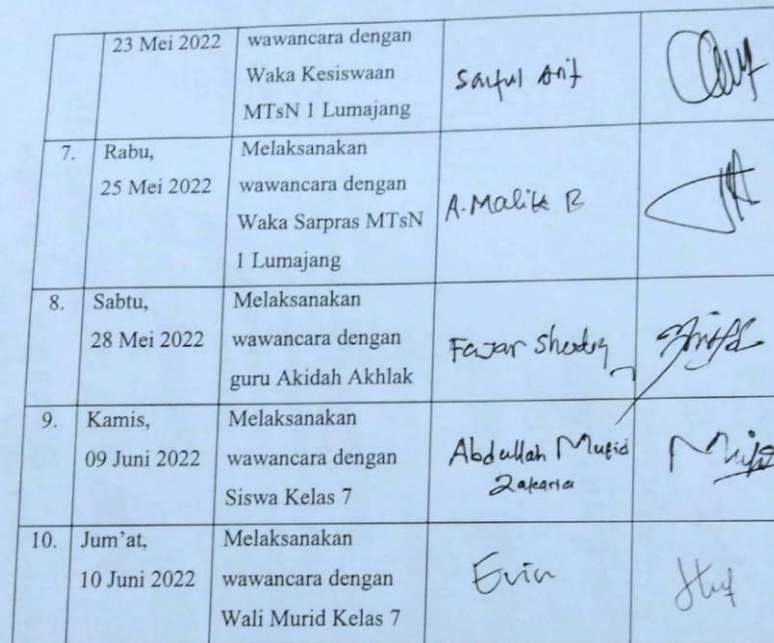 23 Mei 2022
wawancara dengan
Waka Kesiswaan
MTsN 1 Lumajang
Saiful Arif
7.
Rabu,
25 Mei 2022
Melaksanakan
wawancara dengan
Waka Sarpras MTsN
1 Lumajang
A. Malik B
8.
Sabtu,
28 Mei 2022
Melaksanakan
wawancara dengan
guru Akidah Akhlak
Fajar
9.
Kamis,
09 Juni 2022
Melaksanakan
wawancara dengan
Siswa Kelas 7
Abdullah Mufid
Zakaria
10.
Jum'at,
10 Juni 2022
Melaksanakan
wawancara dengan
Wali Murid Kelas 7